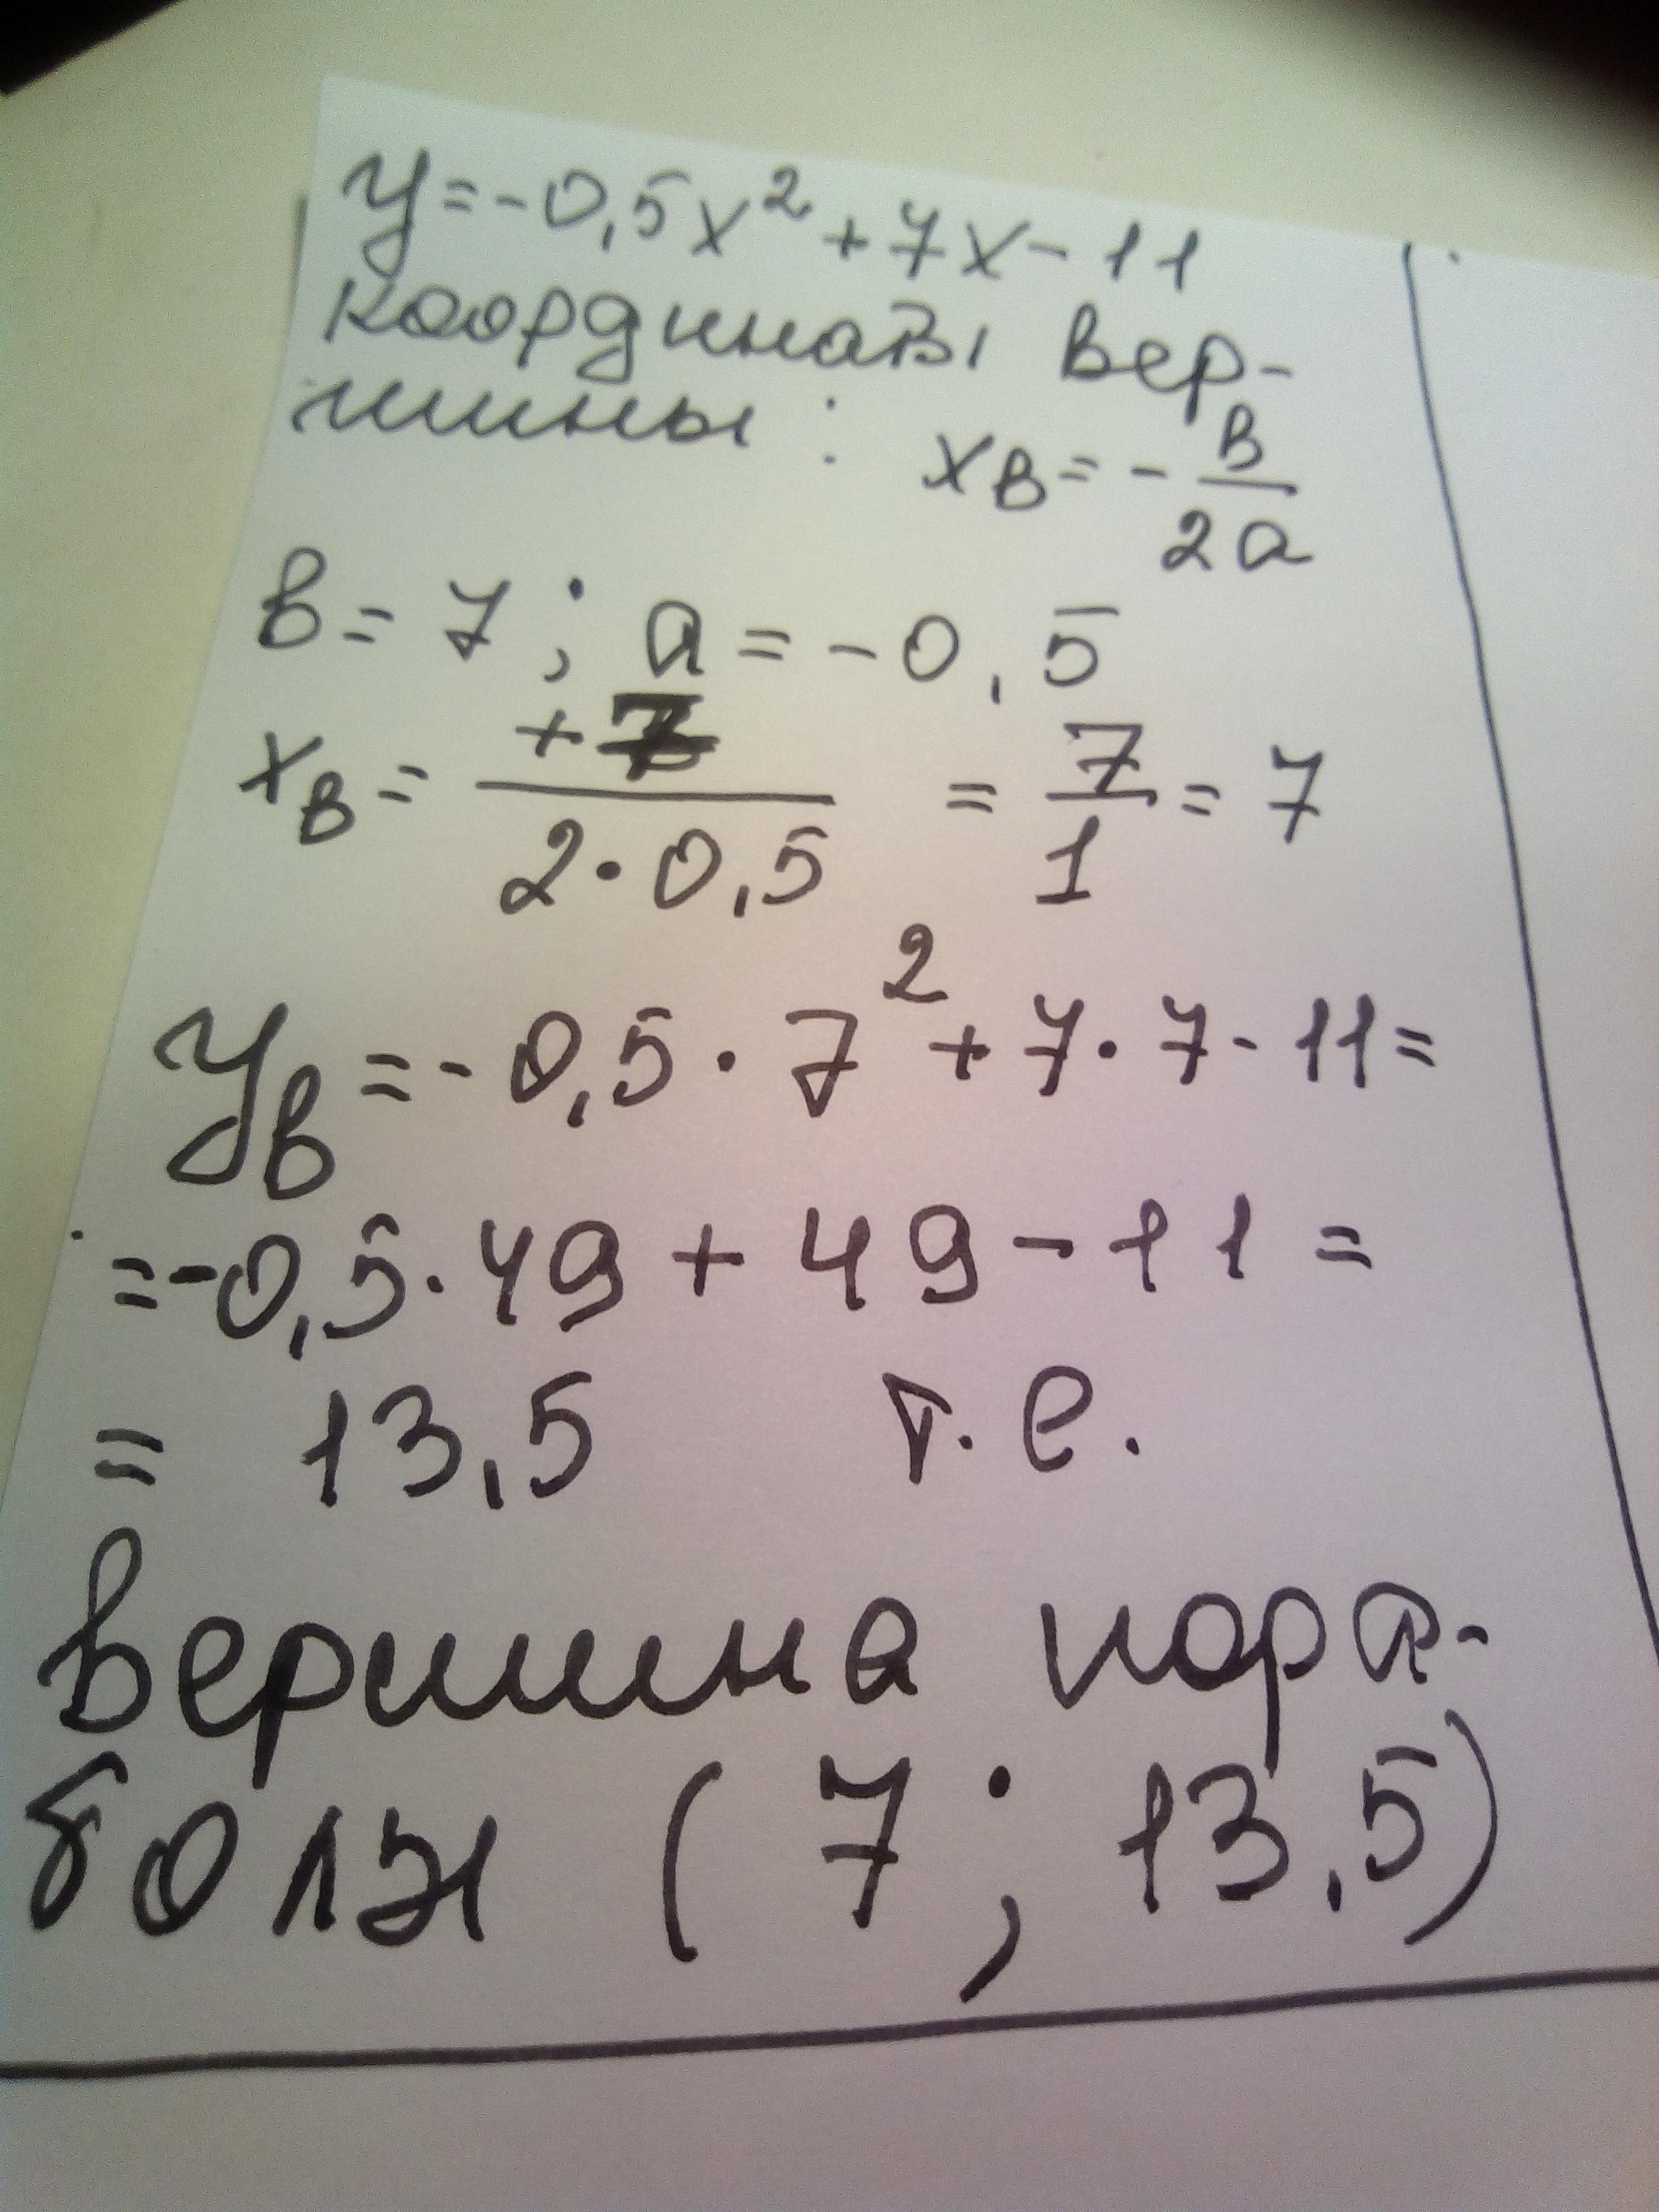 y=-0,5x²+7x-11
Координаты вер-
шины: xв=-в/2a
в=7; a=-0,5
xв= +7/2·0,5 = 7/1 = 7
yв=-0,5·7²+7·7-11=
=-0,5·49+49-11=
= 13,5 т.е.
вершина пара-
болы (7; 13,5)